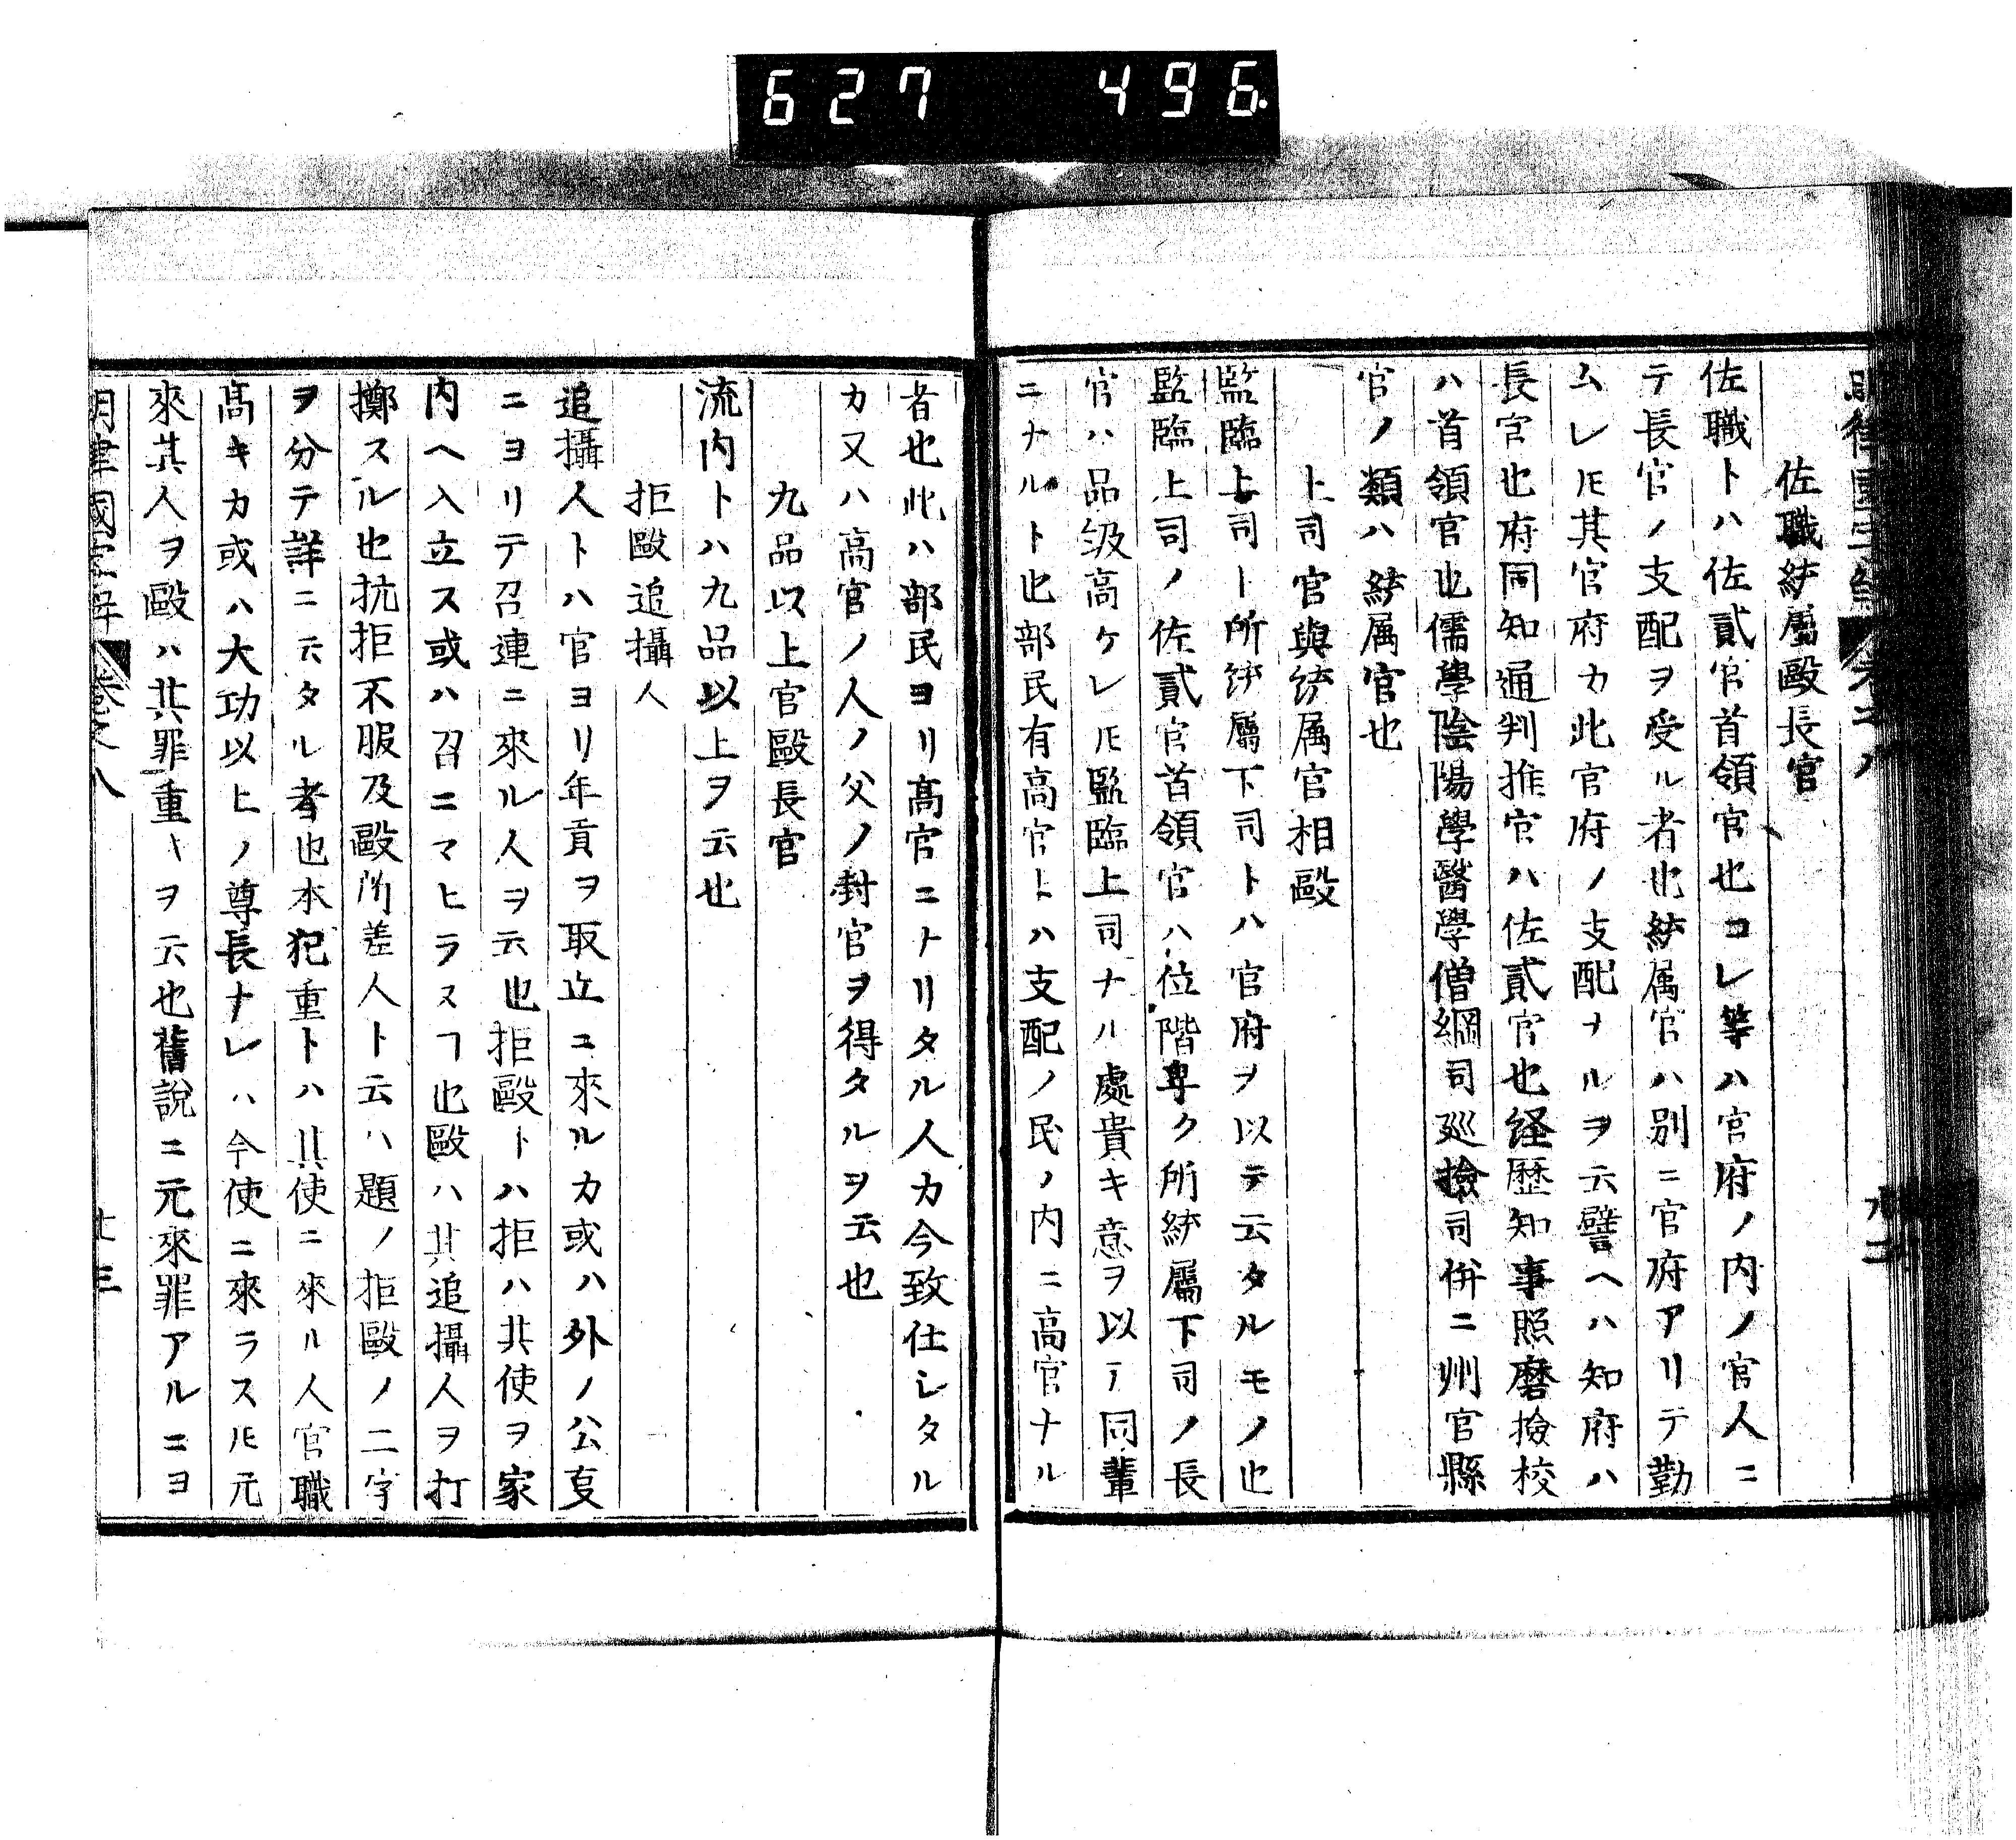 627 496
佐職統屬毆長官
佐職トハ佐貳官首領官也コレ等ハ官府ノ内ノ官人ニ
テ長官ノ支配ヲ受ル者也統属官ハ別ニ官府アリテ勤
ムレ𪜈其官府カ此官府ノ支配ナルヲ云譬ヘハ知府ハ
長官也府同知通判推官ハ佐貳官也経歴知事照磨撿校
ハ首領官也儒學陰陽學醫學僧綱司廵撿司併ニ州官縣
官ノ類ハ統属官也
上司官與统属官相毆
監臨上司ト所統屬下司トハ官府ヲ以テ云タルモノ也
監臨上司ノ佐貳官首領官ハ位階専ク所統屬下司ノ長
官ハ品级高ケレ𪜈監臨上司ナル處貴キ意ヲ以テ同輩
ニナルト也部民有高官トハ支配ノ民ノ内ニ高官ナル
者也此ハ部民ヨリ髙官ニナリタル人カ今致仕レタル
カ又ハ高官ノ人ノ父ノ封官ヲ得タルヲ云也
九品以上官毆長官
流内トハ九品以上ヲ云也
拒毆追攝人
追攝人トハ官ヨリ年貢ヲ取立ニ來ルカ或ハ外ノ公㕝
ニヨリテ召連ニ來ル人ヲ云也拒毆トハ拒ハ其使ヲ家
内ヘ入立ス或ハ召ニマヒラスヿ也毆ハ其追攝人ヲ打
擲スル也抗拒不服及毆所差人ト云ハ題ノ拒毆ノ二字
ヲ分テ詳ニ云タル者也本犯重トハ其使ニ來ル人官職
髙キカ或ハ大功以上ノ尊長ナレハ今使ニ來ラス𪜈元
來其人ヲ毆ハ其罪重キヲ云也舊説ニ元來罪アルニヨ
明律國字解 卷之八 廿三